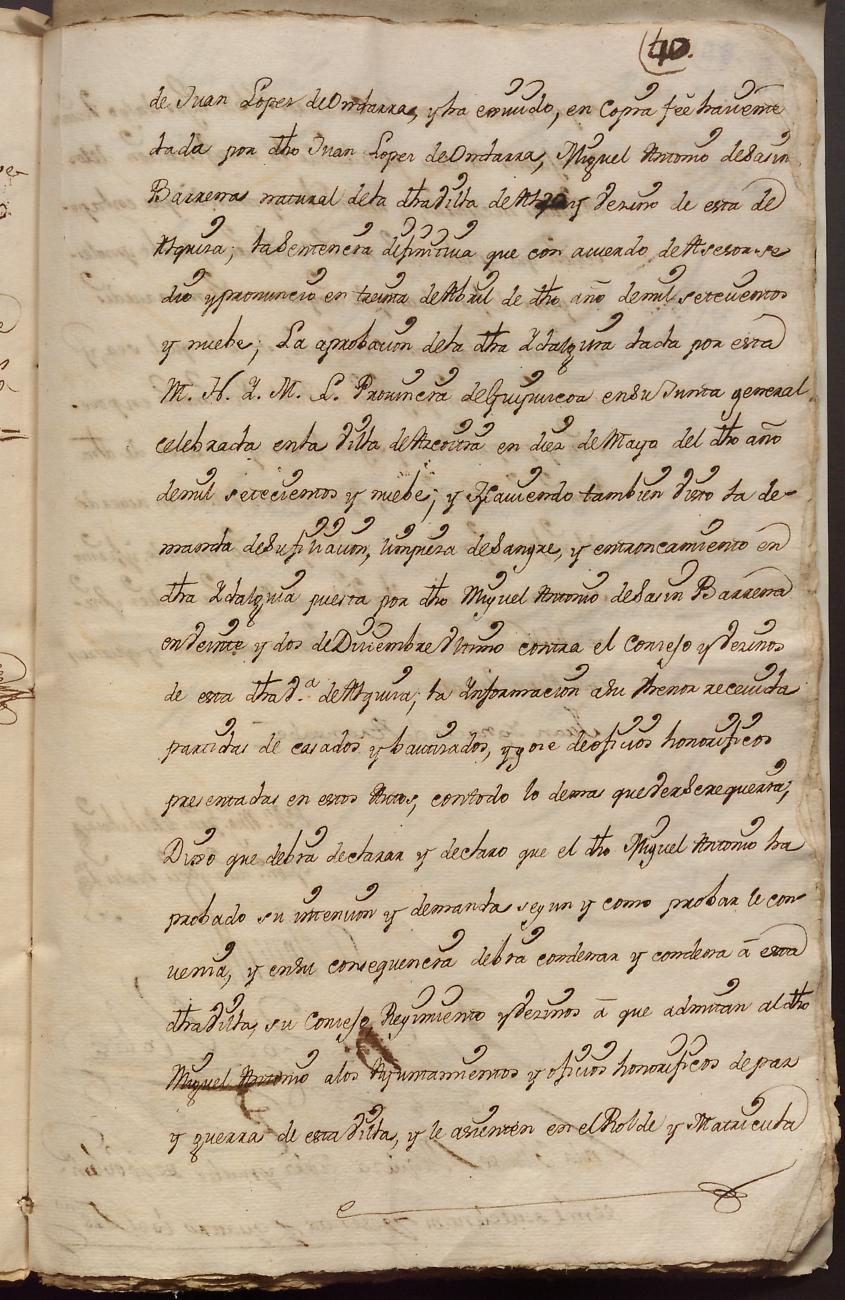 40.
de Juan Lopez de Ondarra, y ha exivido, en Copia feé haviente
dada por dho Juan Lopez de Ondarra, Miguel Antonio de Sasin
Barrena natural de la dha Villa de y Vezino de esta de
Alquiza; la Sentencia difinitiva que con acuerdo de Asesor se
dio y pronuncio en treinta de Abril de dho año de mil setecientos
y nuebe; La aprobacion de la dha Ydalguia dada por esta
M. N. Y. M. L. Provincia de Guipuzcoa en su Junta general
celebrada en la Villa de Azcoitia en diez de Mayo del dho año
de mil setecientos y nuebe; y Haviendo tambien visto la de-
manda de su filiacion, limpieza de Sangre, y entroncamiento en
dha Ydalguia puesta por dho Miguel Antonio de Sasin Barrena
en Veinte y dos de Diciembre Vltimo contra el Concejo y Vezinos
de esta dha V.ª de Alquiza; la Ynformacion a su thenor recevida
partidas de casados y bautizados, y goze de oficios honorificos
presentadas en estos Autos, con todo lo demas que Verse requeria;
Dixo que debia declarar y declaro que el dho Miguel Antonio ha
probado su intencion y demanda segun y como probar le con-
venia, y en su consequencia debia condenar y condena â esta
dha Villa, su Concejo, Regimiento y Vezinos â que admitan al dho
Miguel Antonio a los Ayuntamientos y oficios honorificos de paz
y guerra de esta Villa, y le asienten en el Rolde y Matricula